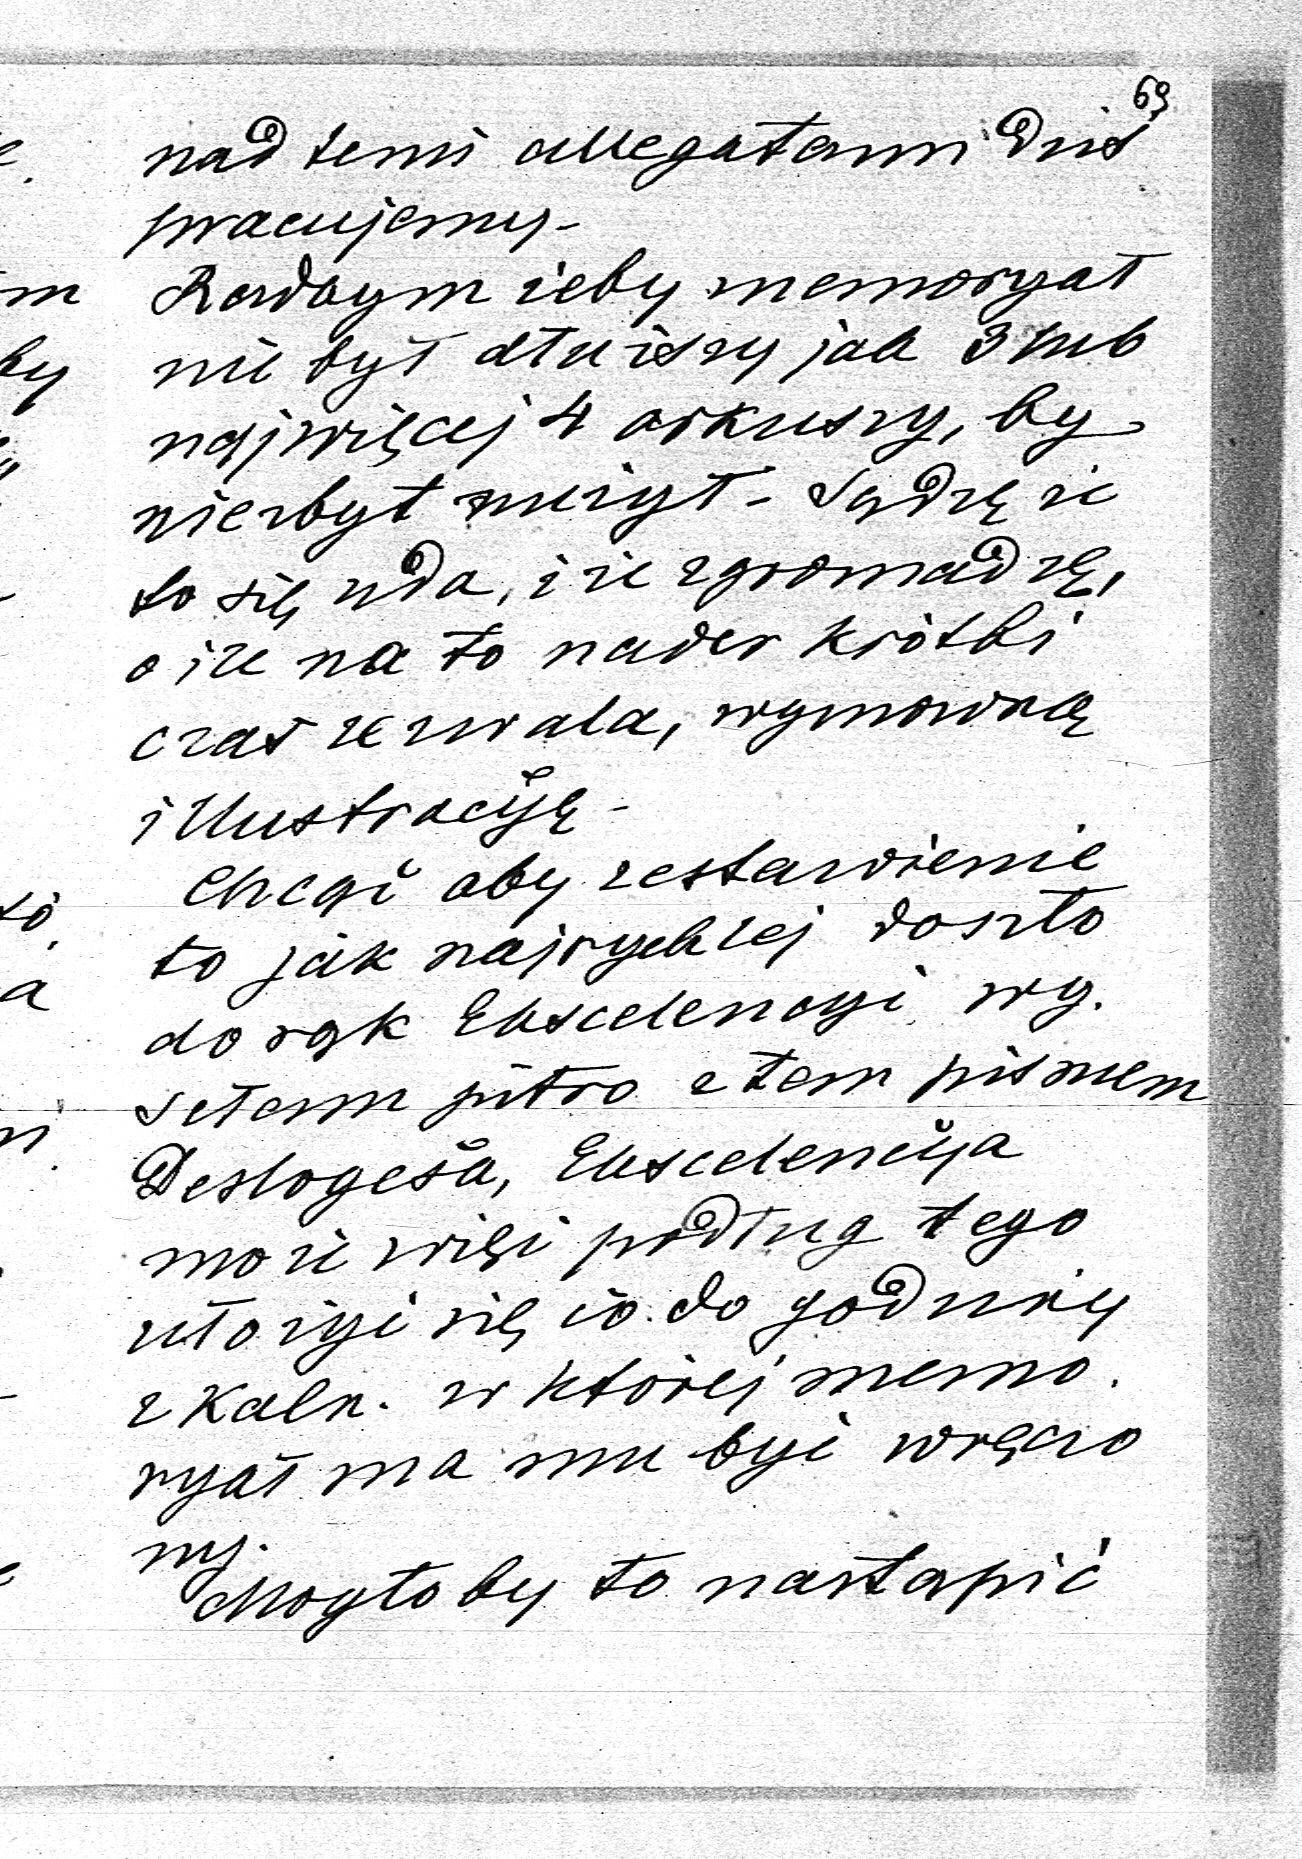 69
nad temi allegatami dziś
pracujemy -
Radbym żeby memoryał
nie był dłuższy jak 3 lub
najwięcej 4 arkuszy, by
niezbyt nużył - Sądzę że
to się uda, i że zgromadzę,
o ile na to nader krótki
czas zezwala, wymowną
illustracyję -
Chcąc aby zestawienie
to jak najrychlej doszło
do rąk Ekscelencyi wy.
sełam jutro z tem pismem
Deslogesa, Ekscelencyja
może więc podług tego
ułożyć się co do godziny
z Kaln. w której memo.
ryał ma mu być wręczo
ny.
Mogłoby to nastąpić